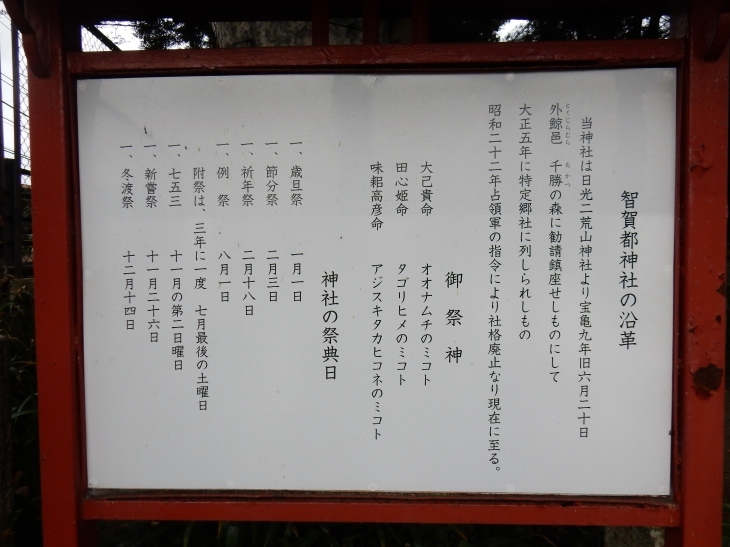 智賀都神社の沿革
当神社は日光二荒山神社より宝亀九年旧六月二十日
外鯨邑　千勝の森に勧請鎮座せしものにして
とくじらむら　ちかつ
大正五年に特定郷社に列しられしもの
昭和二十二年占領軍の指令により社格廃止なり現在に至る。
御祭神
大己貴命　オオナムチのミコト
田心姫命　タゴリヒメのミコト
味耜高彦命　アジスキタカヒコネのミコト
神社の祭典日
一、歳旦祭　一月一日
一、節分祭　二月三日
一、祈年祭　二月十八日
一、例　祭　八月一日
附祭は、三年に一度　七月最後の土曜日
一、七五三　十一月の第二日曜日
一、新嘗祭　十一月二十六日
一、冬渡祭　十二月十四日